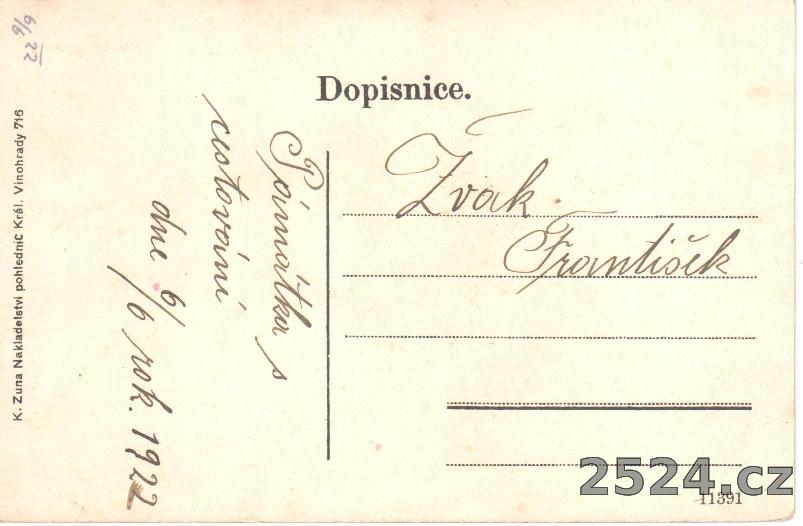 6/6 22
K. Zuna Nakladelství pohlednic Král. Vinohrady 716
Dopisnice.
Pámatka s
cestování
dne 6/6 rok. 1922
Žvak
František
11391
2524.cz